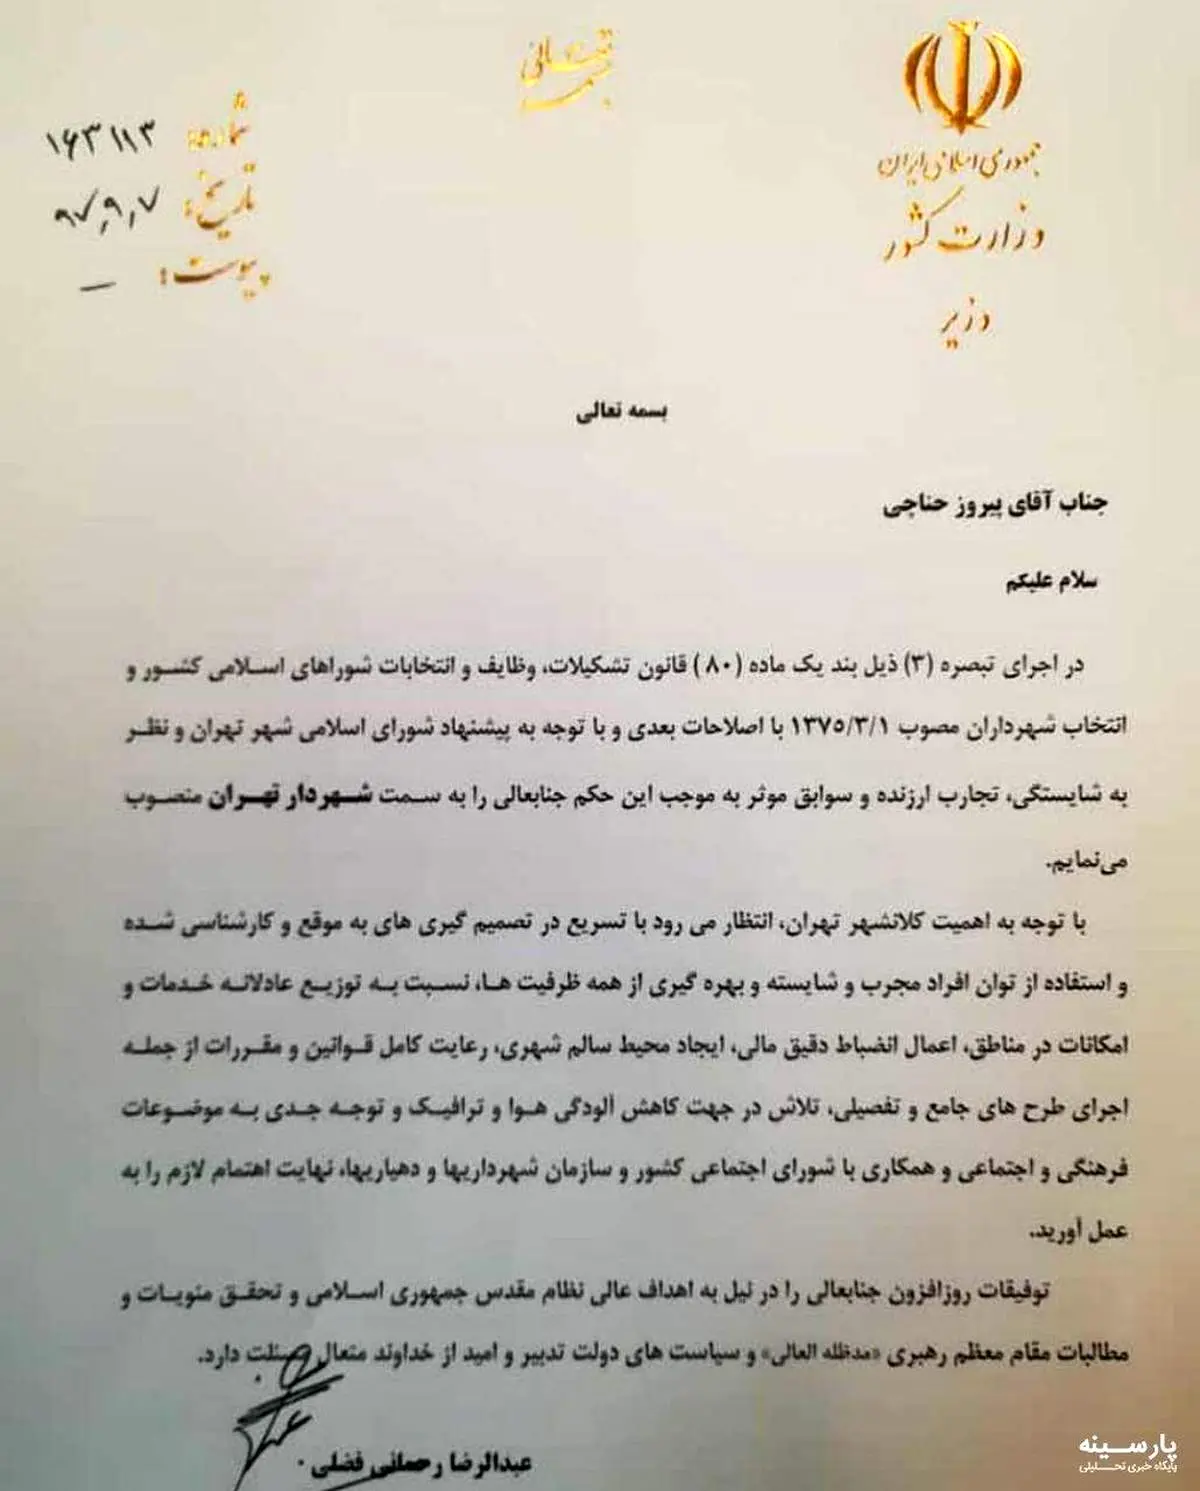 بسمه تعالی
جمهوری اسلامی ایران
وزارت کشور
وزیر
شماره: ۱۶۳۱۱۳
تاریخ: ۹۷,۹,۷
پیوست: —
بسمه تعالی
جناب آقای پیروز حناچی
سلام علیکم
در اجرای تبصره (۳) ذیل بند یک ماده (۸۰) قانون تشکیلات، وظایف و انتخابات شوراهای اسلامی کشور و
انتخاب شهرداران مصوب ۱۳۷۵/۳/۱ با اصلاحات بعدی و با توجه به پیشنهاد شورای اسلامی شهر تهران و نظر
به شایستگی، تجارب ارزنده و سوابق موثر به موجب این حکم جنابعالی را به سمت شهردار تهران منصوب
می‌نمایم.
با توجه به اهمیت کلانشهر تهران، انتظار می رود با تسریع در تصمیم گیری های به موقع و کارشناسی شده
و استفاده از توان افراد مجرب و شایسته و بهره گیری از همه ظرفیت ها، نسبت به توزیع عادلانه خدمات و
امکانات در مناطق، اعمال انضباط دقیق مالی، ایجاد محیط سالم شهری، رعایت کامل قوانین و مقررات از جمله
اجرای طرح های جامع و تفصیلی، تلاش در جهت کاهش آلودگی هوا و ترافیک و توجه جدی به موضوعات
فرهنگی و اجتماعی و همکاری با شورای اجتماعی کشور و سازمان شهرداریها و دهیاریها، نهایت اهتمام لازم را به
عمل آورید.
توفیقات روزافزون جنابعالی را در نیل به اهداف عالی نظام مقدس جمهوری اسلامی و تحقق منویات و
مطالبات مقام معظم رهبری «مدظله العالی» و سیاست های دولت تدبیر و امید از خداوند متعال مسئلت دارد.
عبدالرضا رحمانی فضلی
پارسینه
پایگاه خبری تحلیلی